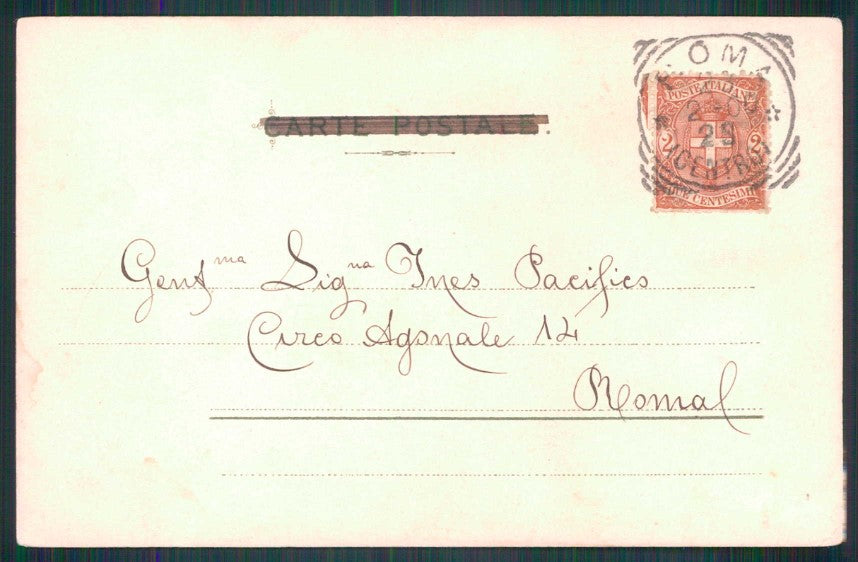 CARTE POSTALE.
ROMA
29
(CENTRO)
POSTE ITALIANE
2 2
DUE CENTESIMI
Gent^ma Sig^na Ines Pacifico
Circo Agonale 12
Roma